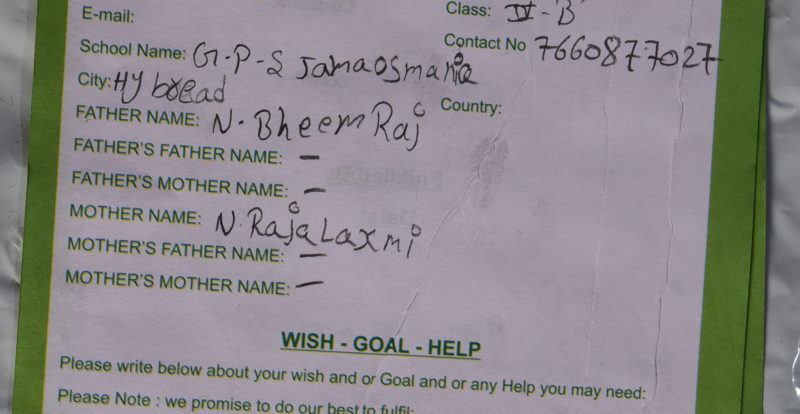 E-mail:
Class: IV-B
School Name: G-P-S Jamaosmania
Contact No 7660877027
City: Hybread
Country:
FATHER NAME: N. Bheem Raj
FATHER'S FATHER NAME: —
FATHER'S MOTHER NAME: —
MOTHER NAME: N. RajaLaxmi
MOTHER'S FATHER NAME: —
MOTHER'S MOTHER NAME: —
WISH - GOAL - HELP
Please write below about your wish and or Goal and or any Help you may need:
Please Note : we promise to do our best to fulfil: